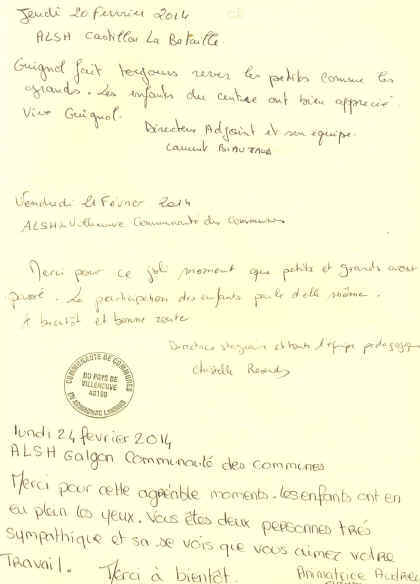 Jeudi 20 février 2014
ALSH Castillon La Bataille
Guignol fait toujours rever les petits comme les
grands. Les enfants du centre ont bien apprecié.
Vive Guignol.
Directeur Adjoint et son equipe.
Laurent
Vendredi 21 Février 2014
ALSH de Villeneuve Communauté des Communes
Merci pour ce joli moment que petits et grands ont
passé. La participation des enfants parle d'elle même.
A bientôt et bonne route
Directrice stagiaire et toute l'équipe pédagogique
Christelle
COMMUNAUTE DE COMMUNES
DU PAYS DE
VILLENEUVE
lundi 24 février 2014
ALSH Galgon Communauté des communes
Merci pour cette agréable moments. les enfants ont en
eu plein les yeux. Vous êtes deux personnes très
sympathique et sa se vois que vous aimez votre
Travail. Merci à bientôt.
Animatrice